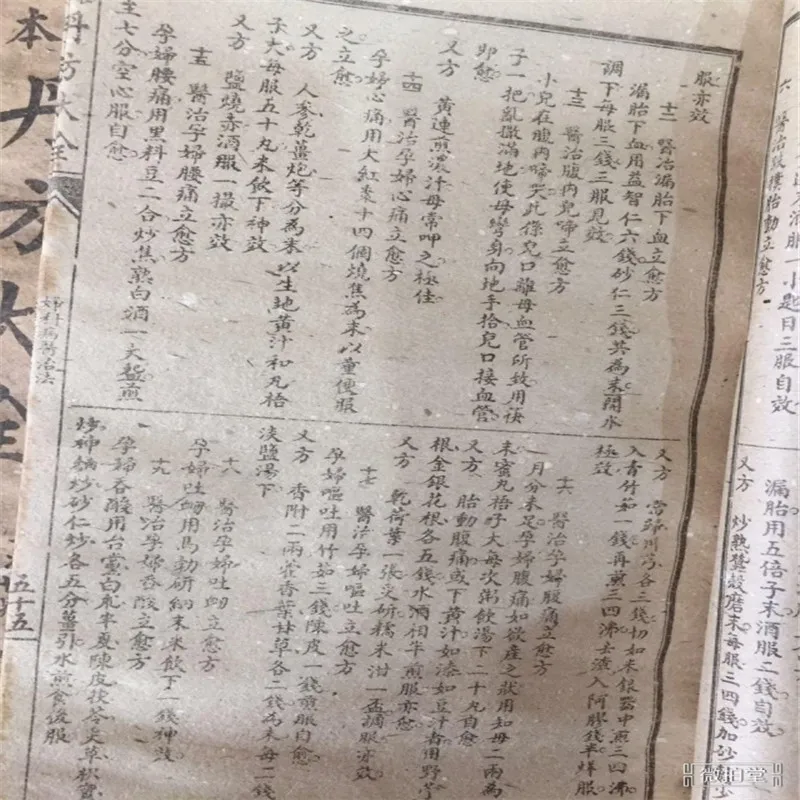 六 醫治跌撲胎動立愈方
酒服一小匙日三服自效
漏胎用五倍子末酒服二錢自效
又方 炒熟蠶殼磨末每服三四錢加砂
服亦效
十二 醫治漏胎下血立愈方
漏胎下血用益智仁六錢砂仁三錢共為末開水
調下每服三錢三服見效
十三 醫治腹內兒啼立愈方
小兒在腹內啼哭此係兒口離母血管所致用筷
子一把亂撒滿地使母彎身向地手拾兒口接血管
即愈
又方 黃連煎濃汁母常呷之極佳
十四 醫治孕婦心痛立愈方
孕婦心痛用大紅棗十四個燒焦為末以童便服
之立愈
又方 人參乾薑炮等分為末以生地黃汁和丸梧
子大每服五十丸米飲下神效
又方 鹽燒赤酒服一撮亦效
十五 醫治孕婦腰痛立愈方
孕婦腰痛用黑料豆二合炒焦熟白酒一大碗煎
至七分空心服自愈
又方 當歸川芎各三錢切如末銀器中煎三四沸
入青竹茹一錢再煎三四沸去渣入阿膠錢半烊服
極效
十六 醫治孕婦腹痛立愈方
月分未足孕婦腹痛如欲產之狀用知母二兩為
末蜜丸梧子大每次粥飲湯下二十丸自愈
又方 胎動腹痛或下黃汁如漆如豆汁者用野苧
根金銀花根各五錢水酒相半煎服亦愈
又方 乾荷葉一張炙研糯米泔一盃調服亦效
十七 醫治孕婦嘔吐立愈方
孕婦嘔吐用竹茹三錢陳皮一錢煎服自愈
又方 香附二兩藿香葉甘草各二錢為末每二錢
淡鹽湯下
十八 醫治孕婦吐衄立愈方
孕婦吐衄用馬勃研細末米飲下一錢神效
十九 醫治孕婦吞酸立愈方
孕婦吞酸用台黨白朮半夏陳皮茯苓炙草枳實
炒神麯炒砂仁炒各五分薑引水煎食後服
丹方大全
婦科病醫治法
五十五
本丹方大全
微拍堂